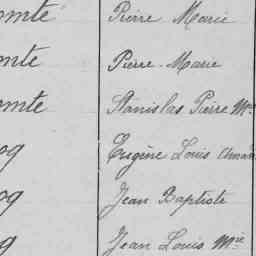 omté Pierre Marie
omte Pierre Marie
omte Stanislas Pierre Mie
og Eugène Louis
og Jean Baptiste
g Jean Louis Mie